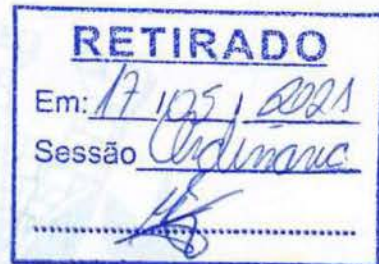 RETIRADO
Em: 17 / 05 / 2021
Sessão Ordinária